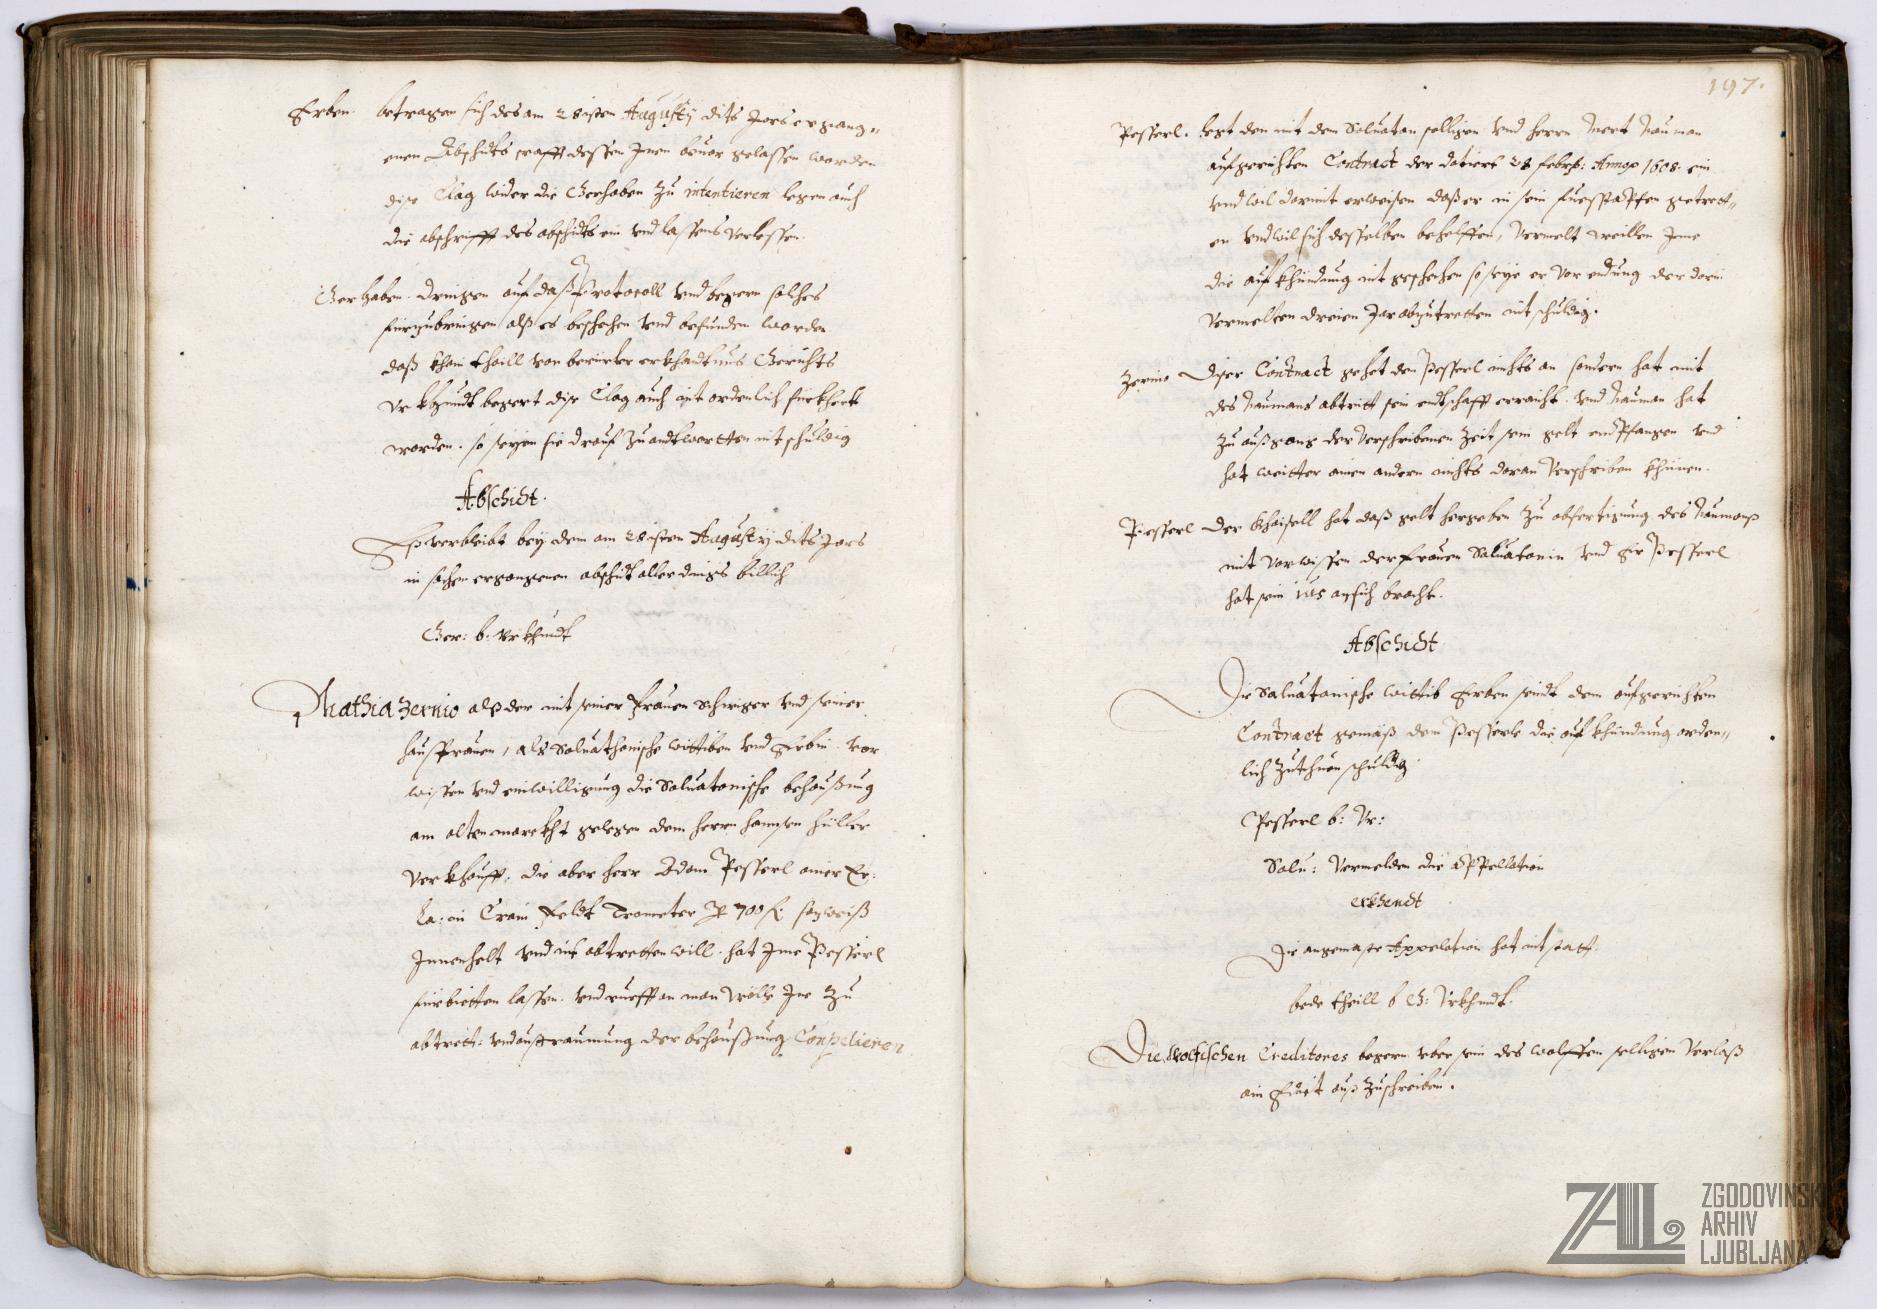 Erben. betragen sich des am 28isten Augusty dits Jars ergang„
enen Abschidts crafft dessen Jnen beuor gelassen worden
dise Clag wider die Gerhaben zu intentieren legen auch
die abschrifft des abschidts ein vnd lassens verlessen.
Gerhaben. dringen auf daß Protocoll vnd begern solches
fürzubringen alß es beschehen vnd befunden worden
daß khain thaill von berierter erkhandtnus Gerichts
Vrkhundt begert dise Clag auch nit ordenlich fürkhert
worden. so seyen sie drauf zu andtwortten nit schuldig
Abschidt.
Eß verbleibt bey dem am 28isten Augusty dits Jars
in sachen ergangenen abschidt aller dings billich
Ger: b: Vrkhundt
Mathia Zernio alß der mit seiner Frauen Schwiger vnd seiner
haußfrauen, als Saluathonische wittiben vnd Erbin. vor
wissen vnd einwilligung die Saluatonische behaußung
am alten marckht gelegen dem herrn hannsen hüller
verkhaufft, die aber herr Adam Pesserl ainer Er:
La: in Crain Feldt Trometer P 700 f: sazweiß
Jnnenhelt vnd nit abtretten will. hat Jme Pesserl
fürbietten lassen. vnd ruefft an man wölle Jne zu
abtrett: vnd außraumung der behaußung Conpelieren
197.
Pesserl. Legt den mit dem Saluatan selligen vnd herrn Mert Nauman
aufgerichten Contract der datiert 28 febr: Anno 1608. ein
vnd wil darmit erweisen daß er in sein fuesstapffen getrett„
en vnd wil sich desselben behelffen, Vermelt weillen Jme
die aufkhündung nit geschehen so seye er vor endung der darin
vermelten dreien Jar abzutretten nit schuldig.
Zernio Diser Contract gehet den Pesserl nichts an sondern hat mit
des Naumans abtritt sein endtschafft erraicht. vnd Nauman hat
zu außgang der verschribenen zeit sein gelt endtpfangen vnd
hat weitter ainen andern nichts daran verschriben khünen.
Pesserl Der Khaisell hat daß gelt hergeben zu abfertigung des Naumanß
mit vorwissen der frauen Saluatonin vnd hir Pesserl
hat sein ius an sich bracht.
Abschidt
Die Saluatonische wittib Erben seindt dem aufgerichten
Contract gemäß dem Pesserle die aufkhündung orden„
lich zuthuen schuldig
Pesserl b: Vr:
Salu: vermelden die appellation
erkhendt
Die angemaste Appelation hat nit statt.
bede theill b G: Vrkhundt.
Die Wolfischen Creditores begern vber sein des wolffen selligen verlaß
ain Edict auß zuschreiben.
ZAL
ZGODOVINSKI
ARHIV
LJUBLJANA